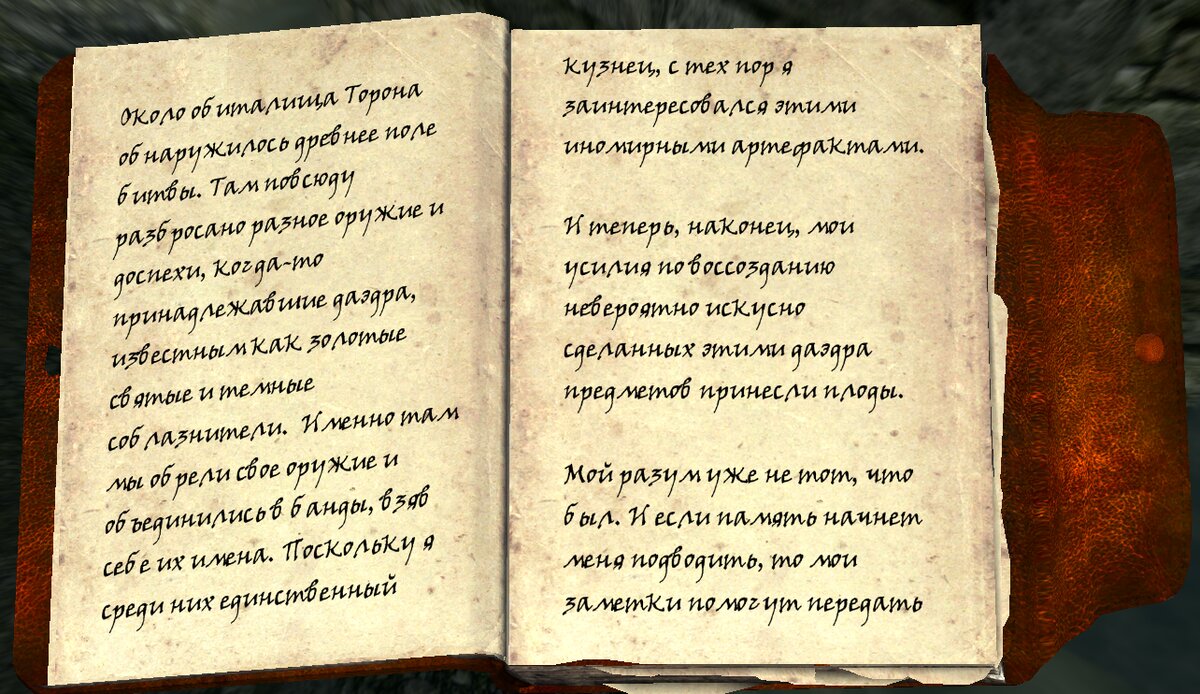 Около обиталища Торона
обнаружилось древнее поле
битвы. Там повсюду
разбросано разное оружие и
доспехи, когда-то
принадлежавшие даэдра,
известным как золотые
святые и темные
соблазнители. Именно там
мы обрели свое оружие и
объединились в банды, взяв
себе их имена. Поскольку я
среди них единственный
кузнец, с тех пор я
заинтересовался этими
иномирными артефактами.
И теперь, наконец, мои
усилия по воссозданию
невероятно искусно
сделанных этими даэдра
предметов принесли плоды.
Мой разум уже не тот, что
был. И если память начнет
меня подводить, то мои
заметки помогут передать